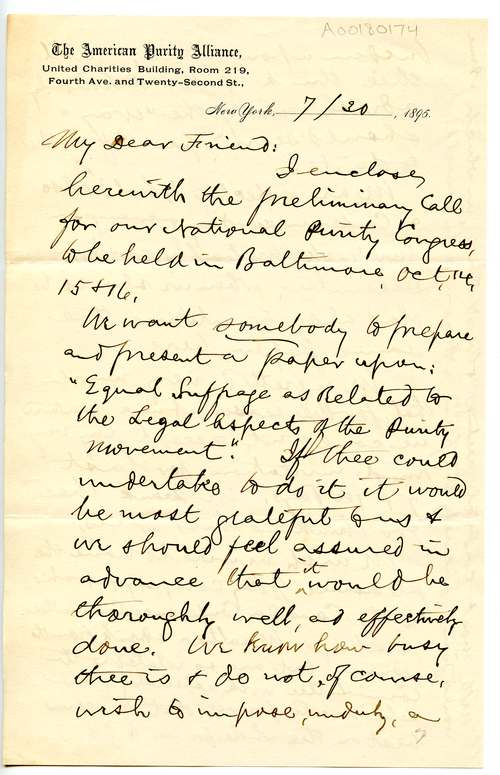 A00180174
The American Purity Alliance,
United Charities Building, Room 219,
Fourth Ave. and Twenty-Second St.,
New York, 7/30 1895.
My Dear Friend:
I enclose,
herewith the preliminary Call
for our National Purity Congress,
to be held in Baltimore, Oct. 14,
15 & 16.
We want somebody to prepare
and present a paper upon:
"Equal Suffrage as Related to
the Legal Aspects of the Purity
Movement." If thee could
undertake to do it it would
be most grateful to us &
we should feel assured in
advance that it would be
thoroughly well, ad effectively
done. We know how busy
thee is & do not, of course,
wish to impose, unduly, a